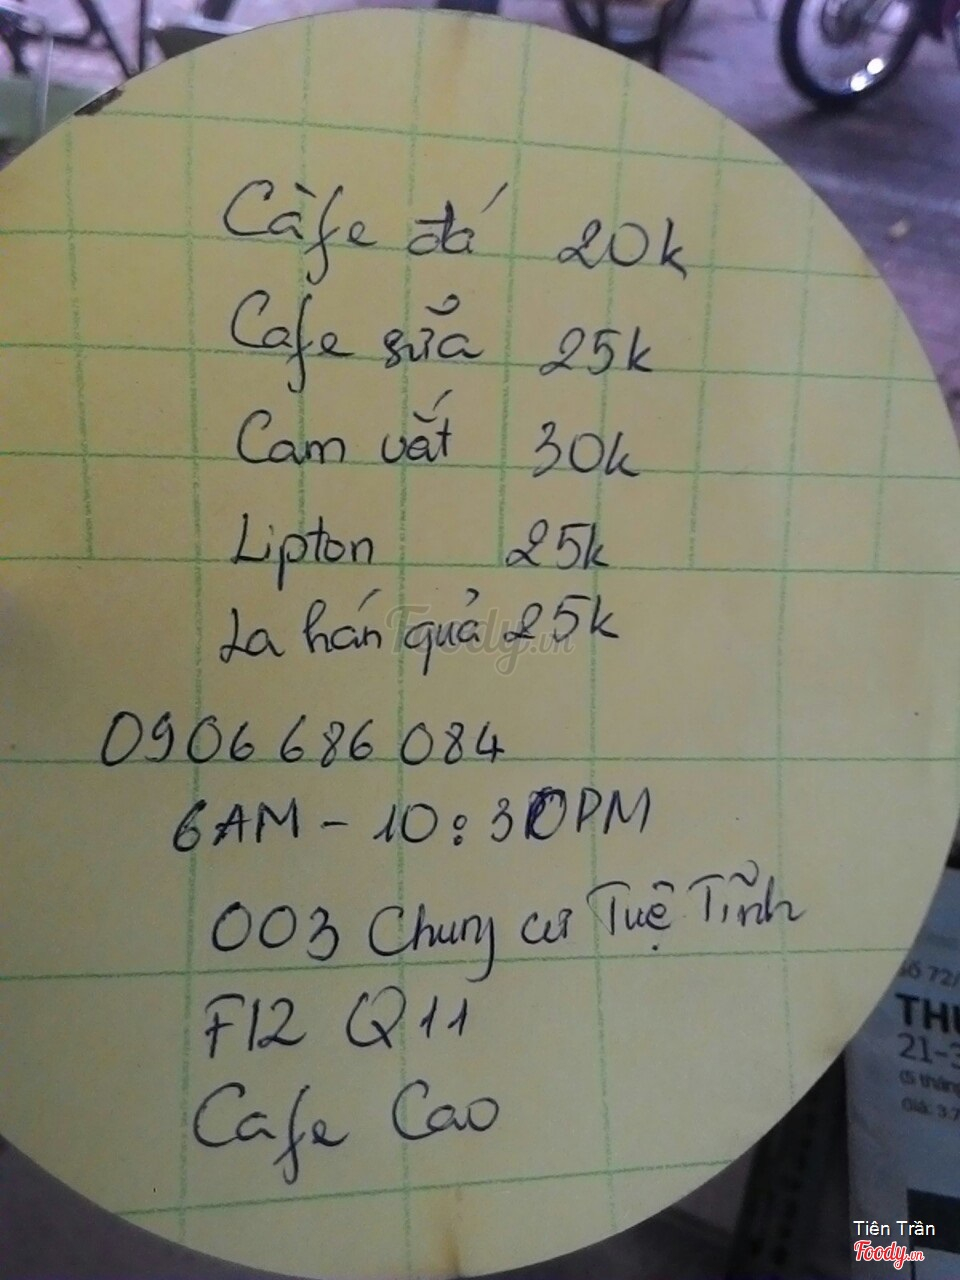 Càfe đá 20k
Cafe sữa 25k
Cam vắt 30k
Lipton 25k
La hán quả 25k
Foody.vn
0906 686 084
6AM - 10:30PM
003 Chung cư Tuệ Tĩnh
F12 Q11
Cafe Cao
Số 72/
THU
21-3
(5 tháng
Giá: 3.7
Tiên Trần
Foody.vn